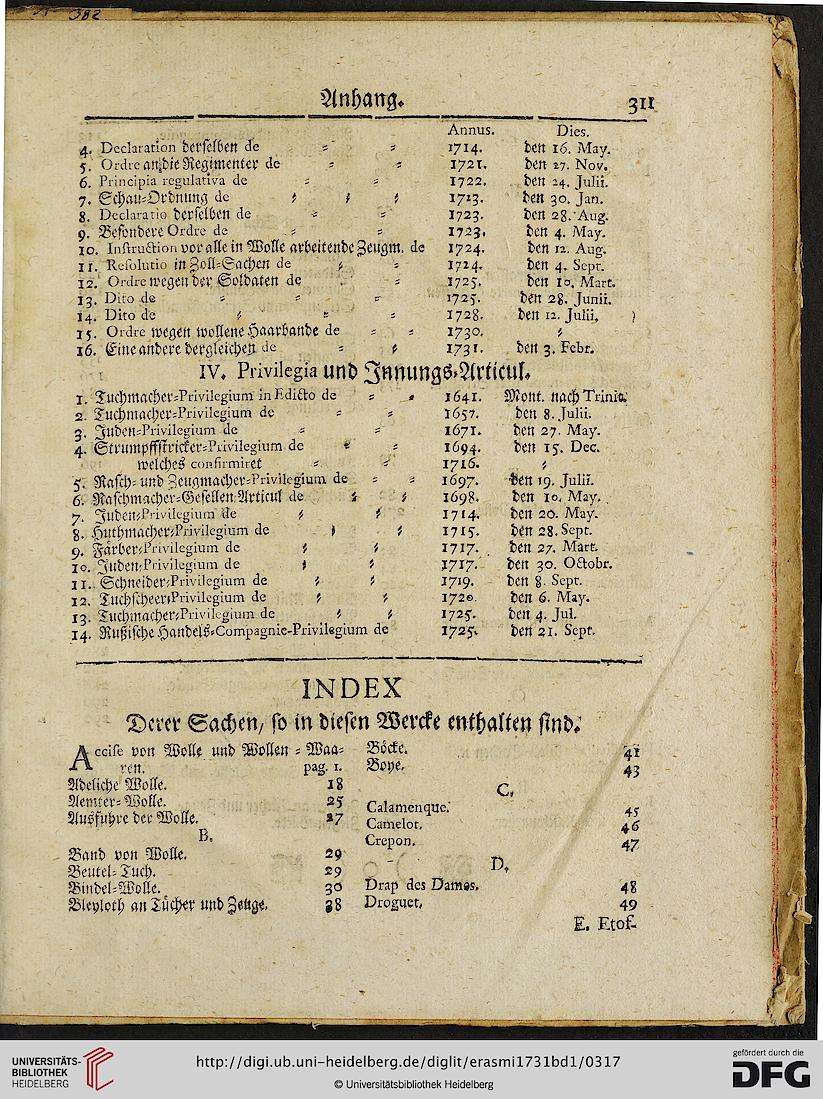 382
Anhang.
311
Annus. Dies.
4. Declaration derselben de = = 1714. den 16. May.
5. Ordre an die Regimenter de = = 1721. den 27. Nov.
6. Principia regulativa de = = 1722. den 24. Julii.
7. Schau-Ordnung de = = = 1723. den 30. Jan.
8. Declaratio derselben de = = 1723. den 28. Aug.
9. Besondere Ordre de = = 1723. den 4. May.
10. Instruction vor alle in Wolle arbeitende Zeugm. de 1724. den 12. Aug.
11. Resolutio in Zoll-Sachen de = = 1724. den 4. Sept.
12. Ordre wegen der Soldaten de = 1725. den 10. Mart.
13. Dito de = = = 1725. den 28. Junii.
14. Dito de = = = 1728. den 12. Julii,
15. Ordre wegen wollene Haarbande de = = 1730. =
16. Eine andere dergleichen de = = 1731. den 3. Febr.
IV. Privilegia und Innungs-Articul.
1. Tuchmacher-Privilegium in Edicto de = = 1641. Mont. nach Trinit.
2. Tuchmacher-Privilegium de = = 1657. den 8. Julii.
3. Juden-Privilegium de = = 1671. den 27. May.
4. Strumpffstricker-Privilegium de = = 1694. den 15. Dec.
welches confirmiret = = 1716. =
5. Rasch- und Zeugmacher-Privilegium de = = 1697. den 19. Julii.
6. Raschmacher-Gesellen Articul de = = 1698. den 10. May.
7. Juden-Privilegium de = = 1714. den 20. May.
8. Huthmacher-Privilegium de = = 1715. den 28. Sept.
9. Färber-Privilegium de = = 1717. den 27. Mart.
10. Juden-Privilegium de = = 1717. den 30. Octobr.
11. Schneider-Privilegium de = = 1719. den 8. Sept.
12. Tuchscheer-Privilegium de = = 1720. den 6. May.
13. Tuchmacher-Privilegium de = = 1725. den 4. Jul.
14. Rußische Handels-Compagnie-Privilegium de 1725. den 21. Sept.
INDEX
Derer Sachen, so in diesen Wercke enthalten sind.
Accise von Wolle und Wollen = Waa-
ren. pag. 1.
Adeliche Wolle. 18
Aemter-Wolle. 25
Ausfuhre der Wolle. 27
B.
Band von Wolle. 29
Beutel-Tuch. 29
Bindel-Wolle. 30
Bleyloth an Tücher und Zeuge. 38
Böcke. 41
Boye. 43
C.
Calamenque. 45
Camelot. 46
Crepon. 47
D.
Drap des Dames. 48
Droguet. 49
E. Etof-
UNIVERSITÄTS-
BIBLIOTHEK
HEIDELBERG
http://digi.ub.uni-heidelberg.de/diglit/erasmi1731bd1/0317
© Universitätsbibliothek Heidelberg
gefördert durch die
DFG